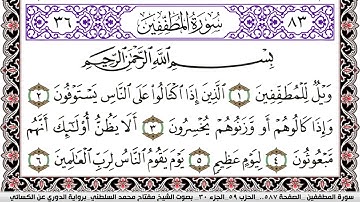 ٨٣ سورة المطففين ٣٦
بِسْمِ اللَّهِ الرَّحْمَٰنِ الرَّحِيمِ
وَيْلٌ لِلْمُطَفِّفِينَ ١ الَّذِينَ إِذَا اكْتَالُوا عَلَى النَّاسِ يَسْتَوْفُونَ ٢
وَإِذَا كَالُوهُمْ أَو وَزَنُوهُمْ يُخْسِرُونَ ٣ أَلَا يَظُنُّ أُولَٰئِكَ أَنَّهُم
مَبْعُوثُونَ ٤ لِيَوْمٍ عَظِيمٍ ٥ يَوْمَ يَقُومُ النَّاسُ لِرَبِّ الْعَالَمِينَ ٦
سورة المطففين . الصفحة ٥٨٧.. الحزب ٥٩ .الجزء ٣٠. بصوت الشيخ مفتاح محمد السلطني. برواية الدوري عن الكسائي